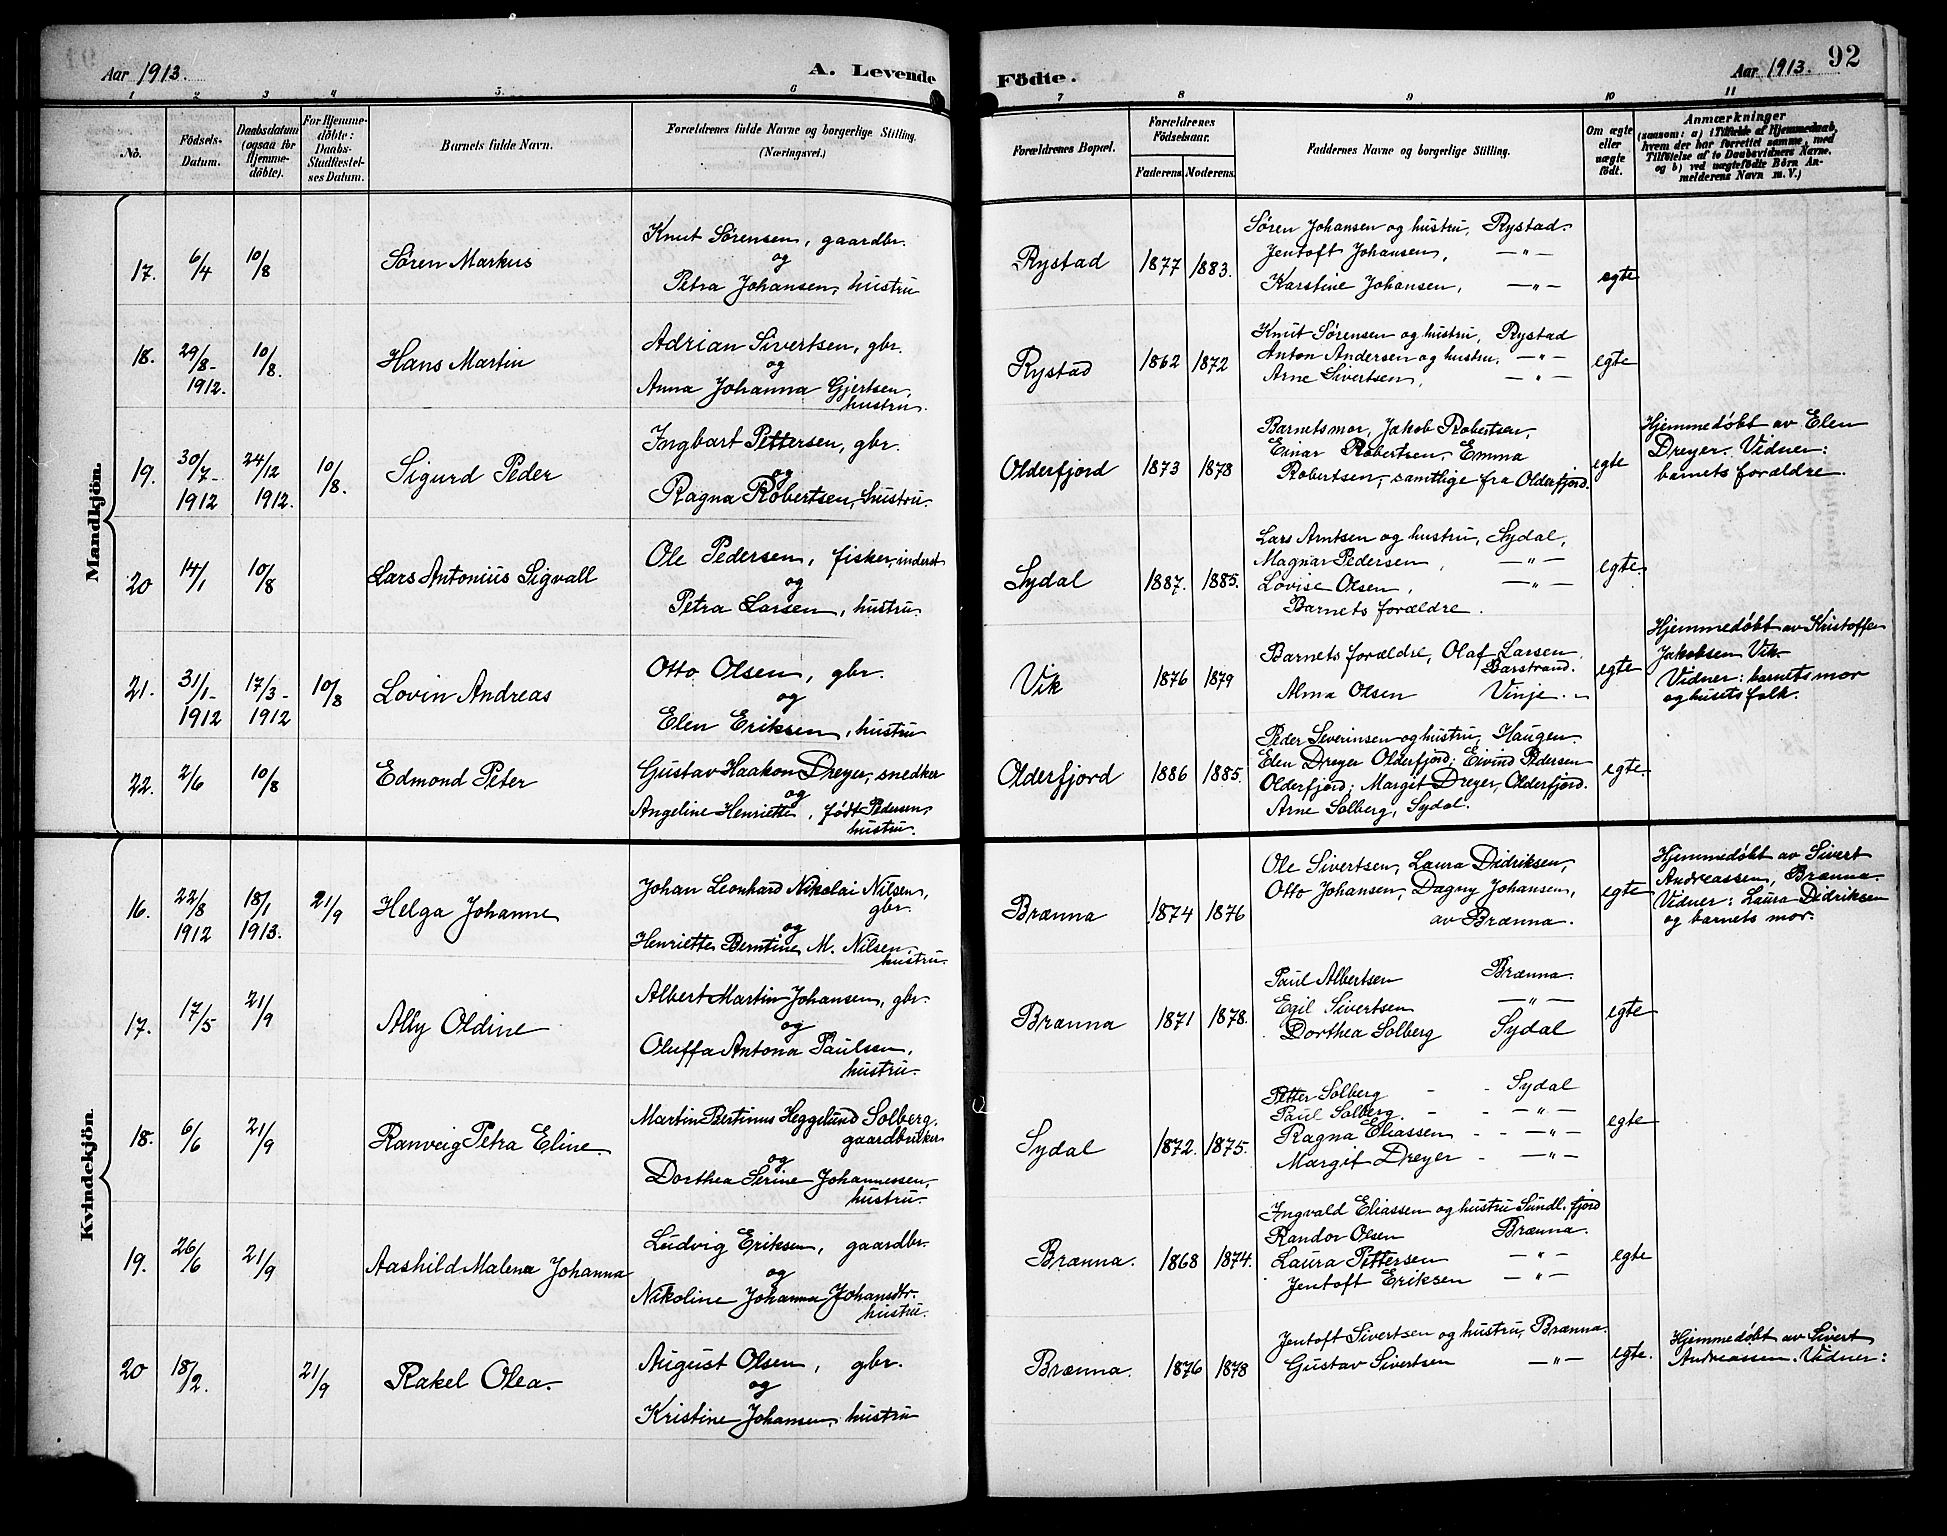 Aar 1913.
A. Levende Födte.
Aar 1913.
92
1 2 3 4 5 6 7 8 9 10 11
No.
Födsels-
Datum.
Daabsdatum
(ogsaa for
Hjemme-
döbte).
For Hjemme-
döbte:
Daabs-
Stadfæstel-
ses Datum.
Barnets fulde Navn.
Forældrenes fulde Navne og borgerlige Stilling.
(Næringsvei.)
Forældrenes Bopæl.
Forældrenes
Födselsaar.
Faderens.
Moderens.
Faddernes Navne og borgerlige Stilling.
Om ægte
eller
uægte
födt.
Anmærkninger
(saasom: a) i Tilfælde af Hjemmedaab,
hvem der har forrettet samme, med
Tilföielse af to Daabsvidners Navne,
og b) ved uægtefödte Börn An-
melderens Navn m. V.)
Mandkjön.
17. 6/4 10/8 Søren Markus
Knut Sørensen, gaardbr.
og
Petra Johansen, hustru
Rystad 1877 1883.
Søren Johansen og hustru, Rystad.
Jentoft Johansen, —"—
Karstine Johansen, —"—
egte
18. 29/8- 1912. 10/8. Hans Martin
Adrian Sivertsen, gbr.
og
Anna Johanna Gjertsen,
hustru.
Rystad 1862 1872
Knut Sørensen og hustru, Rystad
Anton Andersen og hustru. —"—
Arne Sivertsen, —"—
egte
19. 30/7- 1912 24/12 1912. 10/8. Sigurd Peder
Ingbart Pettersen, gbr.
og
Ragna Robertsen, hustru.
Olderfjord 1873 1878
Barnets mor, Jakob Robertsen,
Einar Robertsen, Emma
Robertsen, samtlige fra Olderfjord.
egte
Hjemmedøbt av Elen
Dreyer. Vidner:
barnets forældre.
20 14/1 10/8 Lars Antonius Sigvall
Ole Pedersen, fisker, inderst
og
Petra Larsen, hustru.
Sydal 1887. 1885.
Lars Arntsen og hustru, Sydal,
Magnar Pedersen, —"—
Lovise Olsen, —"—
Barnets forældre.
egte.
21. 31/1- 1912 17/3- 1912 10/8 Lovin Andreas
Otto Olsen, gbr.
og
Elen Eriksen, hustru
Vik 1876 1879
Barnets forældre, Olaf Larsen
Barstrand.
Alma Olsen Vinje. "
egte
Hjemmedøbt av Kristoffer
Jakobsen Vik.
Vidner: barnets mor
og husets folk.
22. 2/6 10/8 Edmond Peter
Gustav Haakon Dreyer, snedker
og
Angeline Henriette, født Pedersen,
hustru.
Olderfjord 1886 1885.
Peder Severinsen og hustru, Haugen.
Elen Dreyer Olderfjord; Eivind Pedersen
Olderfjord; Margit Dreyer, Olderfjord.
Arne Solberg, Sydal.
egte.
Kvindekjön.
16. 22/8 1912 18/1 1913. 21/9 Helga Johanne
Johan Leonhard Nikolai Nilsen,
gbr.
og
Henriette Berntine M. Nilsen,
hustru.
Brænna 1874 1876
Ole Sivertsen, Laura Didriksen,
Otto Johansen, Dagny Johansen,
av Brænna.
egte
Hjemmedøbt av Sivert
Andreassen, Brænna.
Vidner: Laura Didriksen
og barnets mor.
17. 17/5 21/9 Ally Oldine
Albert Martin Johansen, gbr.
og
Oluffa Antona Paulsen,
hustru.
Brænna 1871 1878.
Paul Albertsen Brænna.
Egil Sivertsen —"—
Dorthea Solberg Sydal
egte
18. 6/6 21/9 Ranveig Petra Eline.
Martin Bertinus Heggelund Solberg,
gaardbruker
og
Dorthea Serine Johannessen,
hustru.
Sydal 1872. 1875.
Petter Solberg - - Sydal
Paul Solberg. - - —"—
Ragna Eliassen - - —"—
Margit Dreyer - —"—
egte
19. 26/6 21/9 Aashild Malena Johanna
Ludvig Eriksen, gaardbr.
og
Nikoline Johanna Johansdtr.
hustru.
Brænna. 1868 1874.
Ingvald Eliassen og hustru Sundl. fjord
Randor Olsen Brænna.
Laura Pettersen —"—
Jentoft Eriksen —"—
egte
20 18/2. 21/9 Rakel Olea.
August Olsen, gbr.
og
Kristine Johansen, hustru
Brænna. 1876 1878
Jentoft Sivertsen og hustru, Brænna.
Gustav Sivertsen —"—
egte.
Hjemmedøbt av Sivert
Andreassen. Vidner: